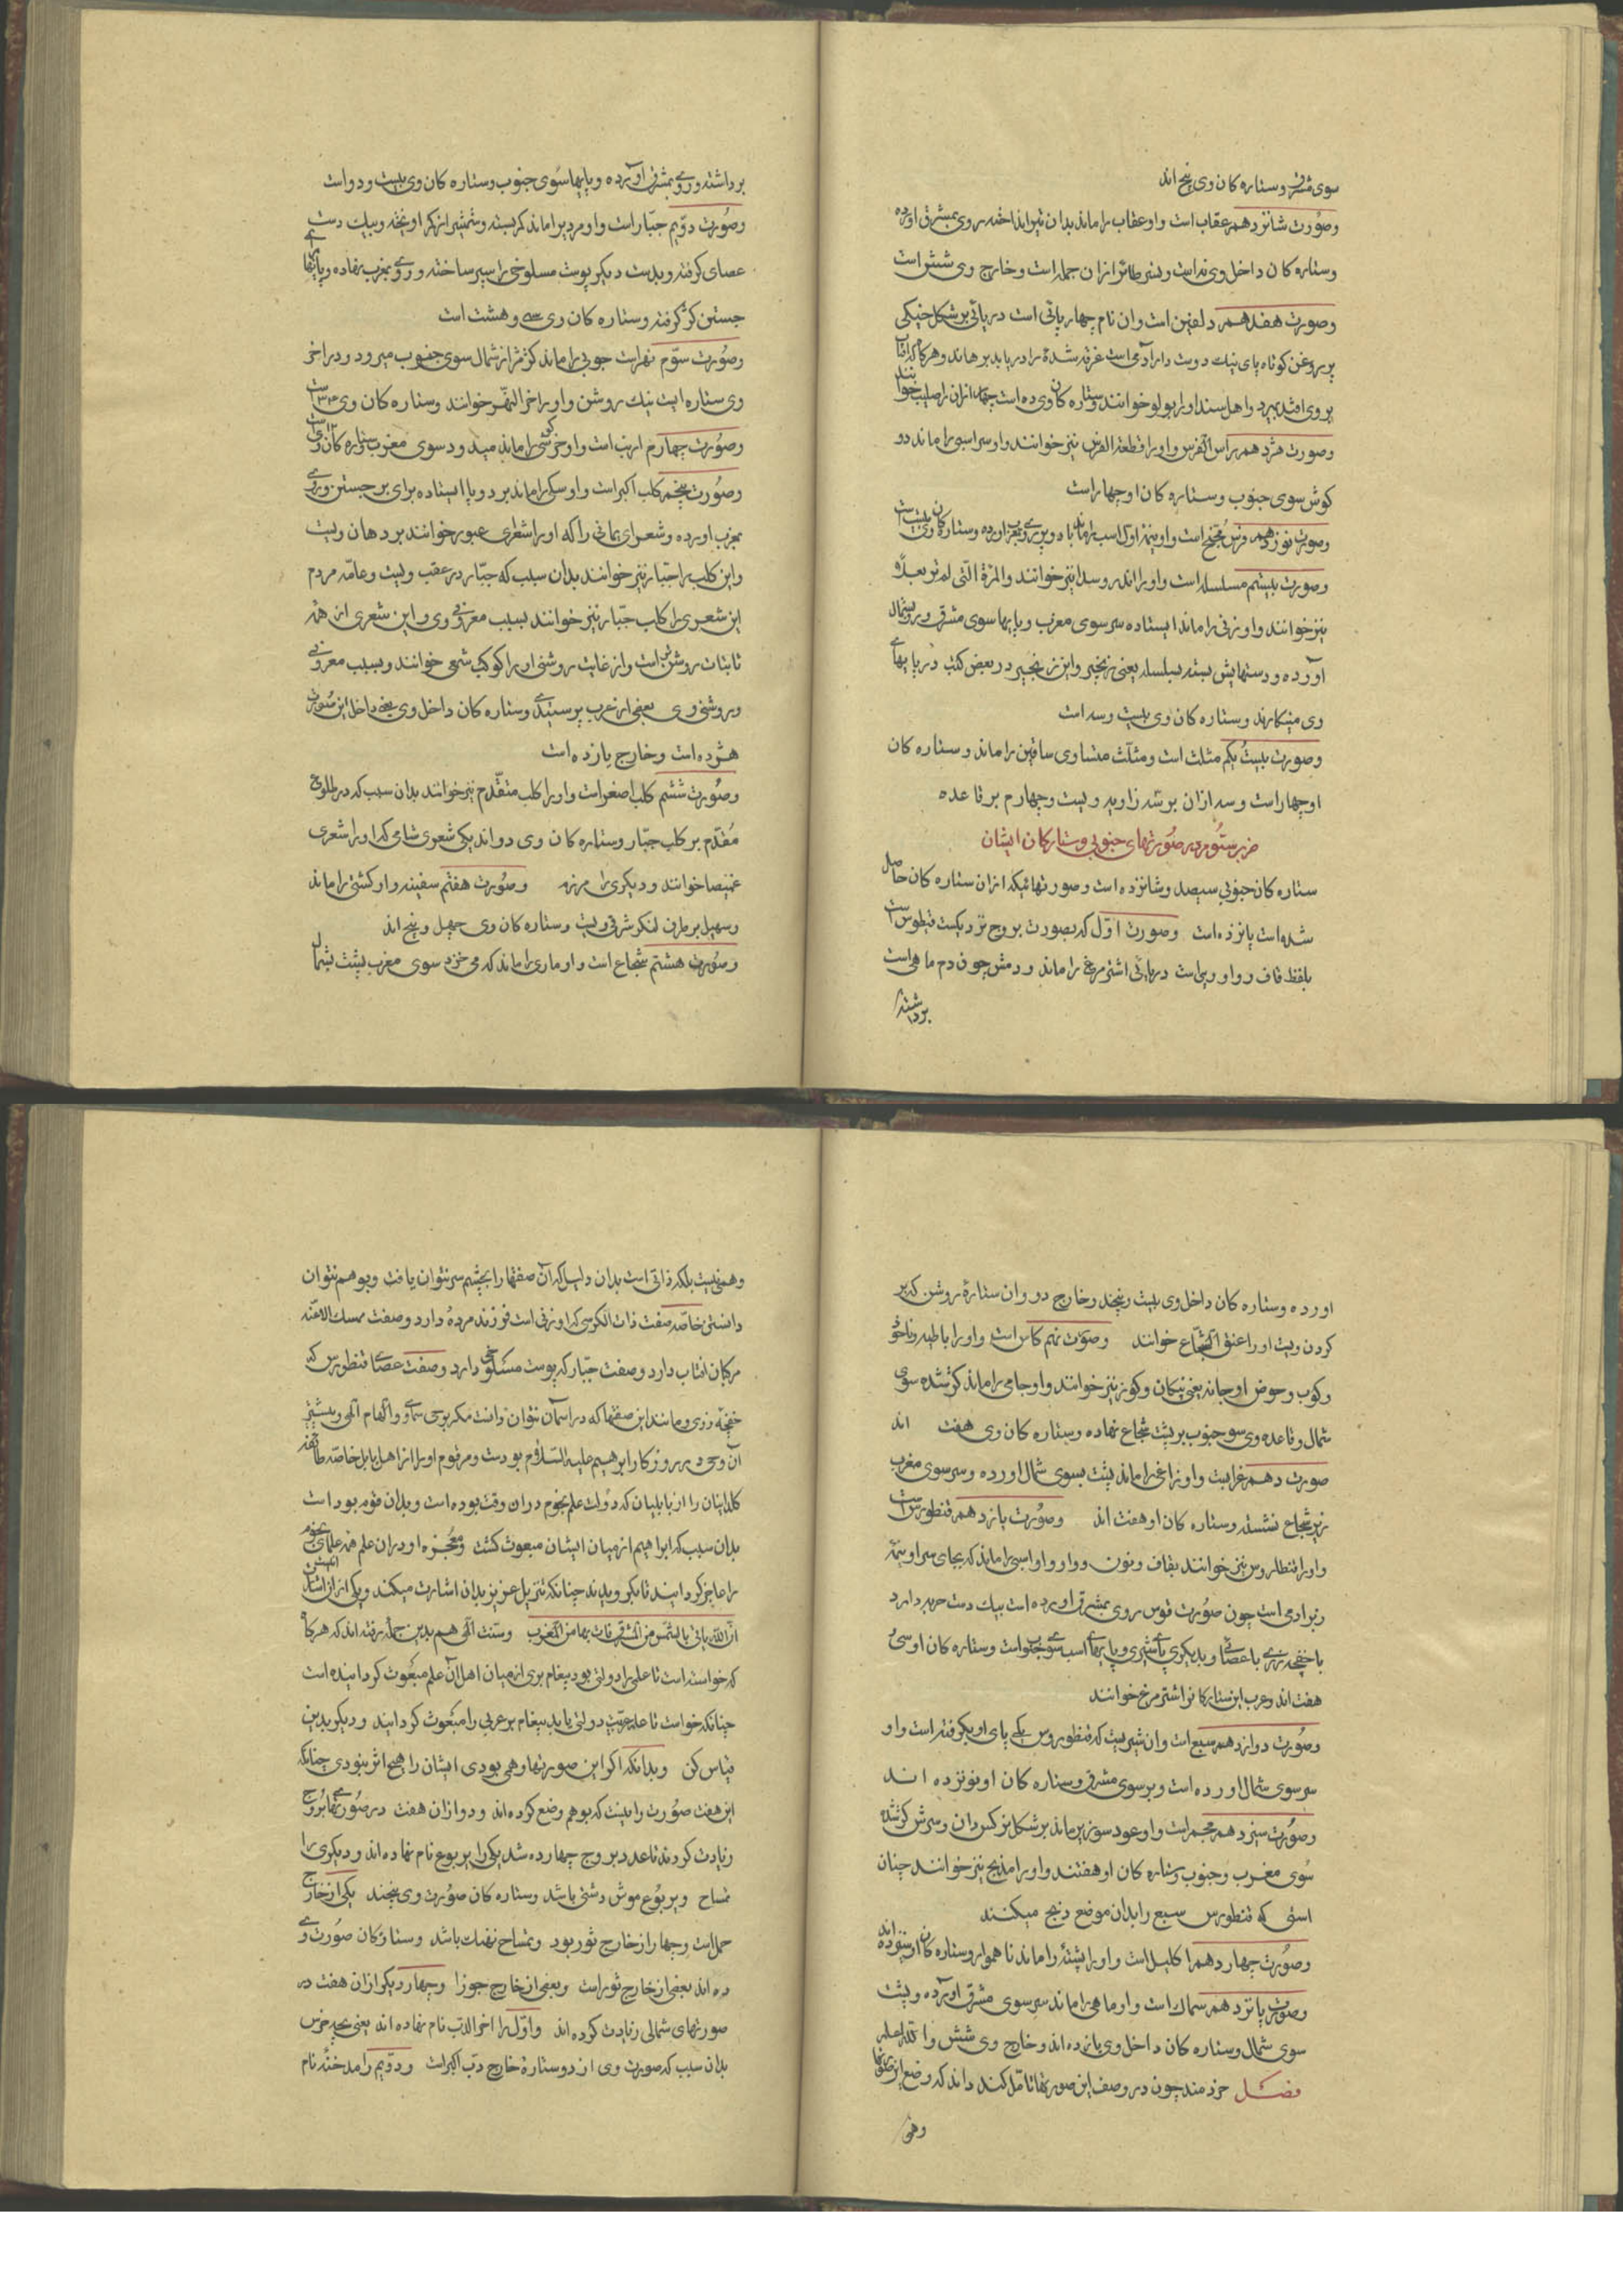 سوی مشرق و ستاره کان وی پنج اند
وصورت شانزدهم عقاب است واو عقاب را ماند بدان تیر انداخته روی بمشرق اورده
وستاره کان داخل وی نه است ونسر طائر ازان جمله است وخارج وی شش است
وصورت هفدهم دلفین است وان نام چهار پائی است دریائی بر شکل خیکی
پر روغن کوتاه پای نیک دوست دار آدمی است غرقه شدۀ را در یابد برهاند وهرکاه که افتاب
بروی افتد بمیرد واهل سند اورا بولو خوانند وستاره کان وی ده است چهار ازان را صلیب خوانند
وصورت هژدهم راس الفرس واورا قطعة الفرس نیز خوانند واو سر اسبی را ماند دو
کوش سوی جنوب وستاره کان او چهار است
وصورت نوزدهم فرس مجنح است واو نیمه اول اسب را ماند با دو پر روی بمغرب اورده وستاره کان وی بیست است
وصورت بیستم مسلسله است واورا اندروسدا نیز خوانند والمراة التی لم تر بعلا
نیز خوانند واو زنی را ماند ایستاده سر سوی مغرب وپایها سوی مشرق وروی بشمال
آورده ودستهایش بسته بسلسله یعنی زنجیر واین زنجیر در بعض کتب در پایهای
وی مینکارند وستاره کان وی بیست وسه است
وصورت بیست یکم مثلث است ومثلث متساوی ساقین را ماند وستاره کان
او چهار است وسه ازان بر سه زاویه ویست وچهارم بر قاعده
ضرب سوم در صورتهای جنوبی وستارکان ایشان
ستاره کان جنوبی سیصد وشانزده است وصورتهائیکه ازان ستاره کان حاصل
شده است پانزده است وصورت اوّل که بصورت بروج نزدیکست قیطوس است
بلفظ قاف وواو ویی است دریائی اشتر مرغ را ماند ودمش چون دم ماهی است
برداشته
برداشته وروی بمشرق آورده وپایها سوی جنوب وستاره کان وی بیست ودو است
وصورت دوّیم جبّار است واو مردیرا ماند کمر بسته وشمشیر از کمر اویخته وبیک دست
عصای کرفته وبدست دیکر پوست مسلوخی را سپر ساخته وروی بمغرب نهاده وپایها
جستن کژ کرفته وستاره کان وی سی وهشت است
وصورت سوّم نهر است جویی را ماند کژمژ از شمال سوی جنوب میرود ودر اخر
وی ستاره ایست نیک روشن واورا اخر النهر خوانند وستاره کان وی ۳۴ است
وصورت چهارم ارنب است واو خرکوشی را ماند میدود سوی مغرب وستاره کان وی ۱۲ است
وصورت پنجم کلب اکبر است واو سکی را ماند بر دو پا ایستاده برای بر جستن وروی
بمغرب اورده وشعرای یمانی را که اورا شعری عبور خوانند بر دهان ویست
واین کلب را جبّار نیز خوانند بدان سبب که جبّار در عقب ویست وعامّه مردم
این شعری را کلب جبّار نیز خوانند بسبب معروفی وی واین شعری از همه
ثابتات روشن تر است واز غایت روشنی اورا کوکب شمعی خوانند وبسبب معروفی
وروشنی وی بعضی از عرب پرستیدی وستاره کان داخل وی یعنی داخل این صورت
هژده است وخارج یازده است
وصورت ششم کلب اصغر است واورا کلب متقدّم نیز خوانند بدان سبب که در طلوع
مقدّم بر کلب جبّار وستاره کان وی دو اند یکی شعری شامی که اورا شعری
غمیصا خوانند ودیکری را مرزم وصورت هفتم سفینه واو کشتی را ماند
وسهیل بر طرف لنکر شرقی ویست وستاره کان وی چهل وپنج اند
وصورت هشتم شجاع است واو ماری را ماند که می خزد سوی مغرب پشت بشمال
اورده وستاره کان داخل وی بیست وپنجند وخارج دو وان ستارۀ روشن که بر
کردن ویست اورا عنق الشجاع خوانند وصورت نهم کاس است واورا باطیه وناجو
وکوب وحوض او جانه یعنی نیکان وکوز نیز خوانند واو جامی را ماند کژ شده سوی
شمال وقاعده وی سوی جنوب بر پشت شجاع نهاده وستاره کان وی هفت اند
صورت دهم غرابست واو زاغی را ماند پشت بسوی شمال اورده وسر سوی مغرب
زیر شجاع نشسته وستاره کان او هفت اند وصورت یازدهم قنطورس است
واورا قنطاروس نیز خوانند بقاف ونون ودو واو واو اسبی را ماند که بجای سر او نیمه
زبر ادمی است چون صورت قوس روی بمشرق اورده است بیک دست حربه دارد
با خفچه رزی با عصائی وبدیکری پای شیری وپایهای اسب سوی جنوب است وستاره کان او سی
هفت اند وعرب این ستارکانرا اشتر مرغ خوانند
وصورت دوازدهم سبع است وان شیریست که قنطوروس یک پای او بکرفته است واو
سر سوی شمال اورده است وبر سوی مشرق وستاره کان او نوزده اند
وصورت سیزدهم مجمر است واو عود سوزیرا ماند بر شکل نرکس دان وسرش کژ شده
سوی مغرب وجنوب وستاره کان او هفتند واورا مذبح نیز خوانند چنان
استی که قنطورس سبع را بدان موضع ذبح میکنند
وصورت چهاردهم اکلیل است واورا پشتۀ را ماند ناهموار وستاره کان او سیزده اند
وصورت پانزدهم سمک است واو ماهی را ماند سر سوی مشرق آورده وپشت
سوی شمال وستاره کان داخل وی یازده اند وخارج وی شش والله اعلم
فصل خردمند چون در وصف این صورتها تامّل کند داند که وضع این صورتها
وهمی
وهمی نیست بلکه ذاتی است بدان دلیل که آن صفتها را بچشم سر نتوان یافت وبوهم نتوان
دانستن خاصّه صفت ذات الکرسی که او زنی است فرزند مرده دارد وصفت ممسک الاعنه
مرکبان افتاب دارد وصفت جبّار که پوست مسلوخی دارد وصفت عصای قنطورس که
خفچه رزی ومانند این صفتها که در آسمان نتوان دانست مکر بوحی سماوی والهام الهی وبیشتر
آن وحی در روزکار ابراهیم علیه السّلام بودست ومر قوم اورا از اهل بابل خاصّه طائفه
کلدانیان را از بابلیان که دولت علم نجوم دران وقت بوده است وبدان قوم بود است
بدان سبب که ابراهیم از میان ایشان مبعوث کشت ومعجزه او دران علم همه علمای نجوم
را عاجز کردانید تا بکرویدند چنانکه تنزیل عزیز بدان اشارت میکند ویکی ازان اشارتش
انّ الله یاتی بالشمس من المشرق فات بها من المغرب وسنت الهی هم بدین جمله رفته اند که هرکاه
که خواسته است تا علمی را دولتی بود پیغام بری از میان اهل آن علم مبعوث کردانیده است
چنانکه خواست تا علم عربیت دولتی یابد پیغام بر عربی را مبعوث کردانید ودیکر بدین
قیاس کن وبدانکه اکر این صورتها وهمی بودی ایشان را هیچ اثر نبودی چنانکه
این هفت صورت را نیست که بوهم وضع کرده اند ودو ازان هفت در صورتهای بروج
زیادت کردند تا عدد بروج چهارده شد یکی را یربوع نام نهاده اند ودیکری را
تمساح ویربوع موش دشتی باشد وستاره کان صورت وی پنجند یکی از خارج
حمل است وچهار از خارج ثور بود وتمساح نهنک باشد وستارکان صورت وی
ده اند بعضی از خارج ثور است وبعضی از خارج جوزا وچهار دیکر ازان هفت در
صورتهای شمالی زیادت کرده اند واوّل را اخر الدب نام نهاده اند یعنی بچه خرس
بدان سبب که صورت وی از دو ستارۀ خارج دبّ اکبر است ودوّیم را مدخنه نام